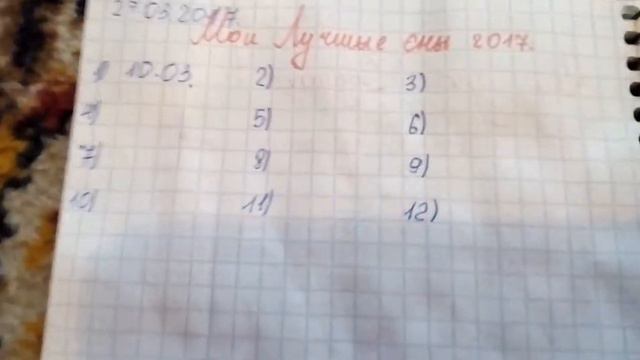 27.03.2017.
Мои Лучшие сны 2017.
1) 10.03. 2) 3)
4) 5) 6)
7) 8) 9)
10) 11) 12)